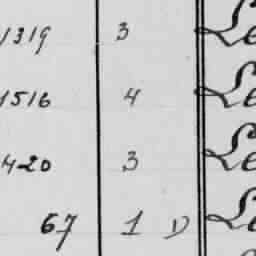 1319 3 Le
1516 4 Le
420 3 Le
67 1 D Le